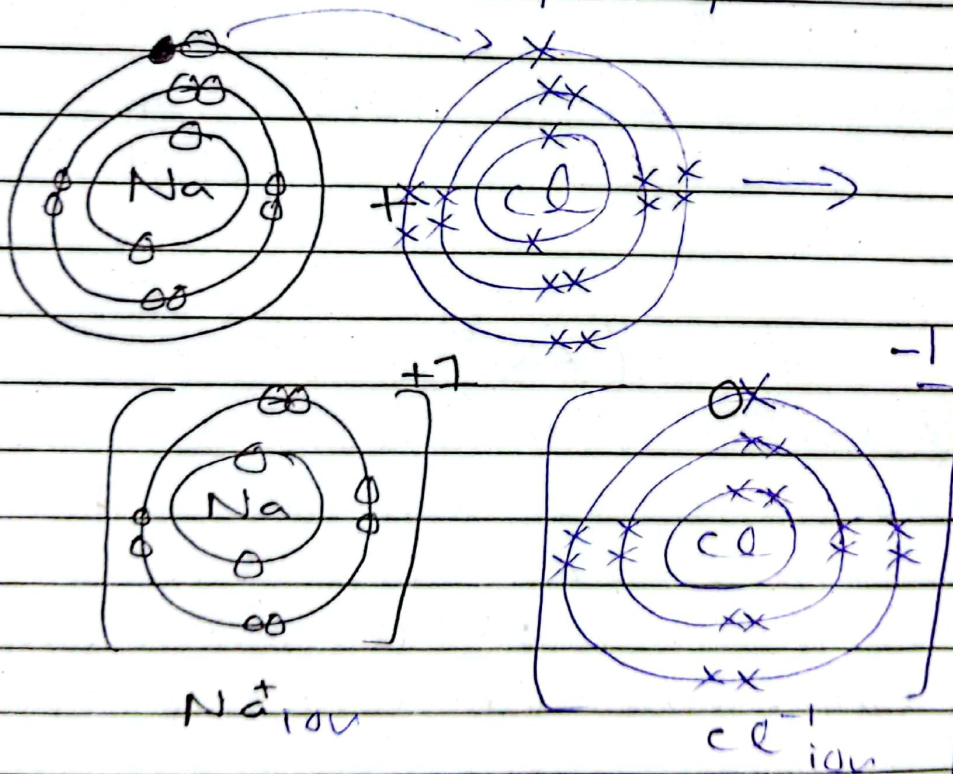 Na + Cl →
+1 -1
Na Cl
Na+ ion Cl-1 ion